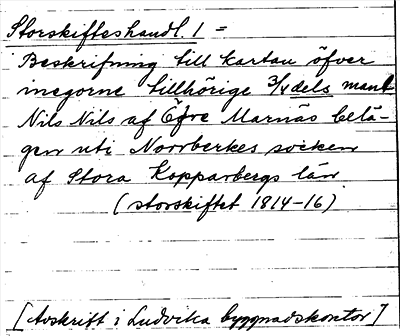 Storskifteshandl. 1 =
Beskrifning till kartan öfver
inegorne tillhörige 3/4 dels mant
Nils Nils af Öfre Marnäs belä-
gen uti Norrberkes socken
af Stora Kopparbergs län
(storskiftet 1814-16)
[Avskrift i Ludvika byggnadskontor]